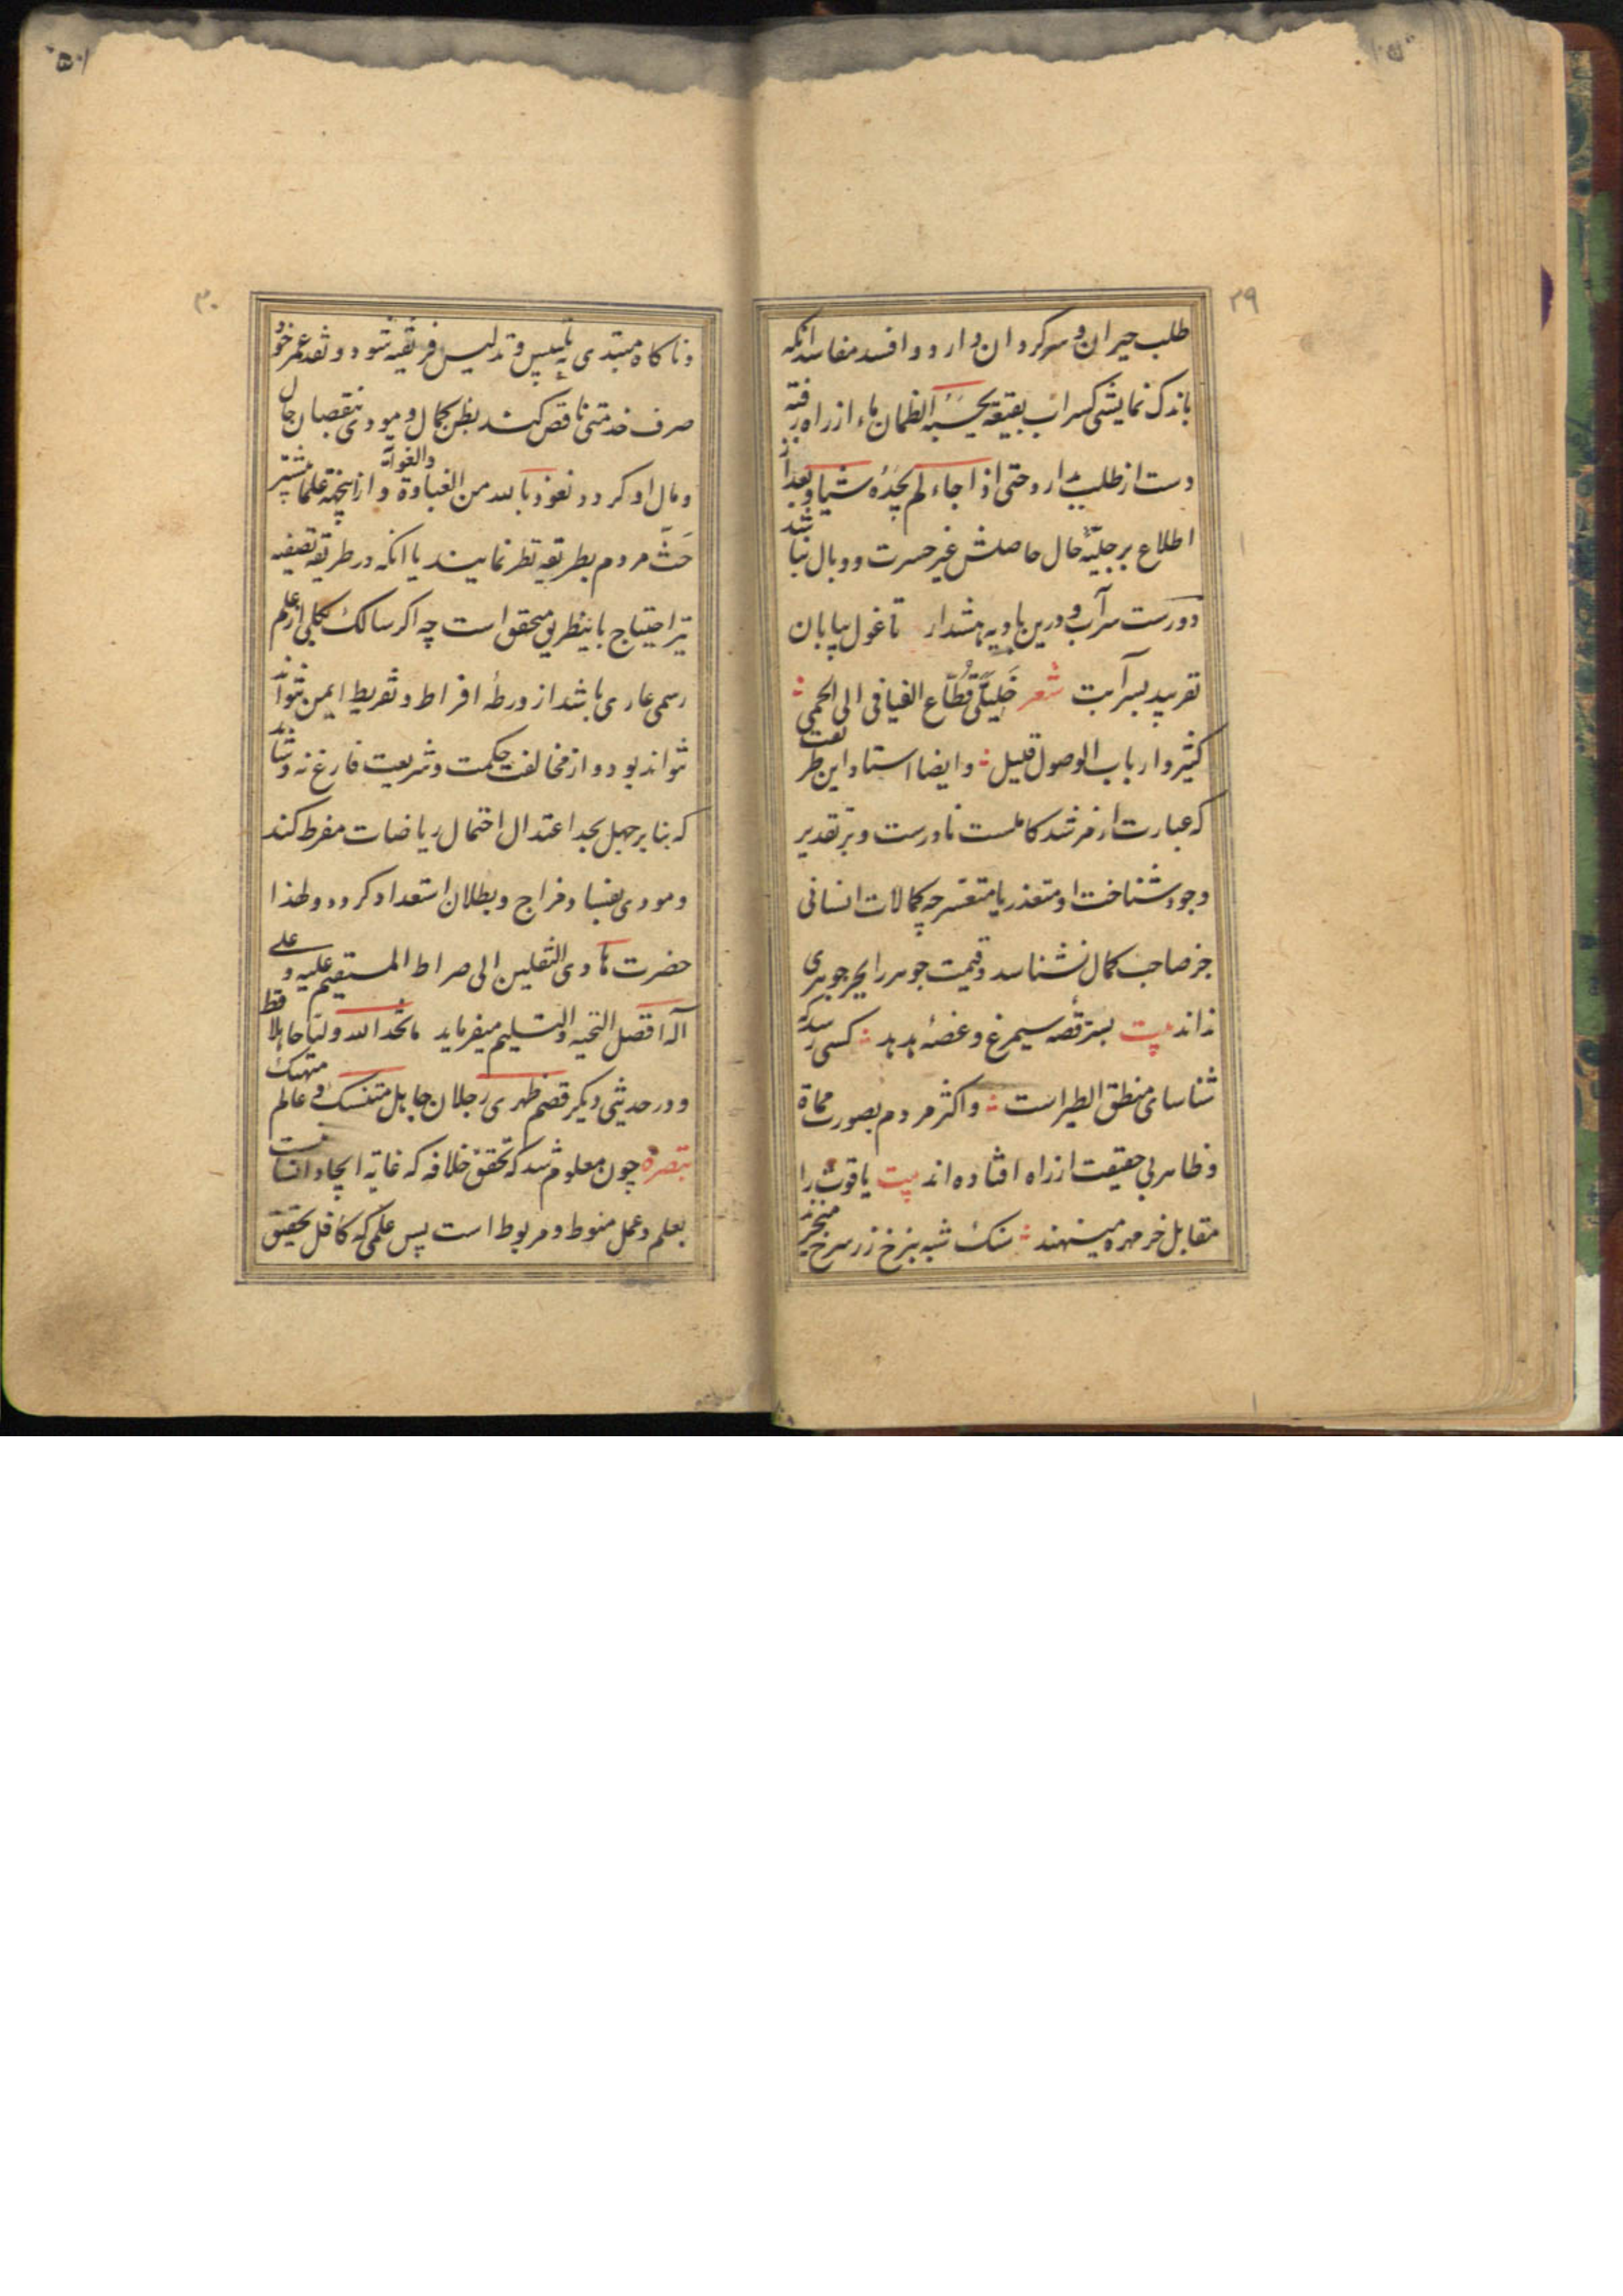 ۲۹
طلب حیران و سرکردان دارد و افسد مفاسد انکه
باندک نمایشی کسراب بقیعة یحسبه الظمان ماء از راه رفته
دست از طلب دارد حتی اذا جاءه لم یجده شیأ و بعد از
اطلاع بر جلیّه حال حاصلش غیر حسرت و وبال نباشد
دورست سرآب درین بادیه هشدار تا غول بیابان
نفریبد بسرآبت شعر خلیلیّ قُطّاع الفیافی الی الحمی
کثیر و ارباب الوصول قلیل و ایضا استاد این طریقت
که عبارت از مرشد کاملست نادرست و بر تقدیر
وجود شناخت او متعذر یا متعسر چه کمالات انسانی
جز صاحب کمال نشناسد و قیمت جوهر را بجز جوهری
نداند بیت بسرّ قصه سیمرغ و غصهٔ هدهد کسی رسد که
شناسای منطق الطیر است و اکثر مردم بصورت مماة
و ظاهر بی حقیقت از راه افتاده اند بیت یاقوت را
مقابل خرمهره مینهند سنک شبه بنرخ زر سرخ میخرند
۳۰
و ناکاه مبتدی به تلبیس و تدلیس فریفته شود و نقد عمر خود
صرف خدمتی ناقص کند بظن کمال و مودی بنقصان حال
و مال او کردد نعوذ بالله من الغباوة والغوایة و از اینجهة علما بیشتر
حَثّ مردم بطریقه نظر نمایند با انکه در طریقه تصفیه
نیز احتیاج باینطریق متحقق است چه اکر سالک بکلی از علم
رسمی عاری باشد از ورطهٔ افراط و تفریط ایمن نتواند
نتواند بود و از مخالفت حکمت و شریعت فارغ نه و شاید
که بنابر جهل بحد اعتدال احتمال ریاضات مفرط کند
و مودی بفساد مزاج و بطلان استعداد کردد و لهذا
حضرت هادی الثقلین الی صراط المستقیم علیه و علی
آله افضل التحیه و التسلیم میفرماید ما اتخذ الله ولیا جاهلا قط
و در حدیثی دیکر قصم ظهری رجلان جاهل متنسک و عالم متهتک
تبصره چون معلوم شد که تحقق خلافه که غایة ایجاد انسانست
بعلم و عمل منوط و مربوط است پس علمی که کافل تحقیق